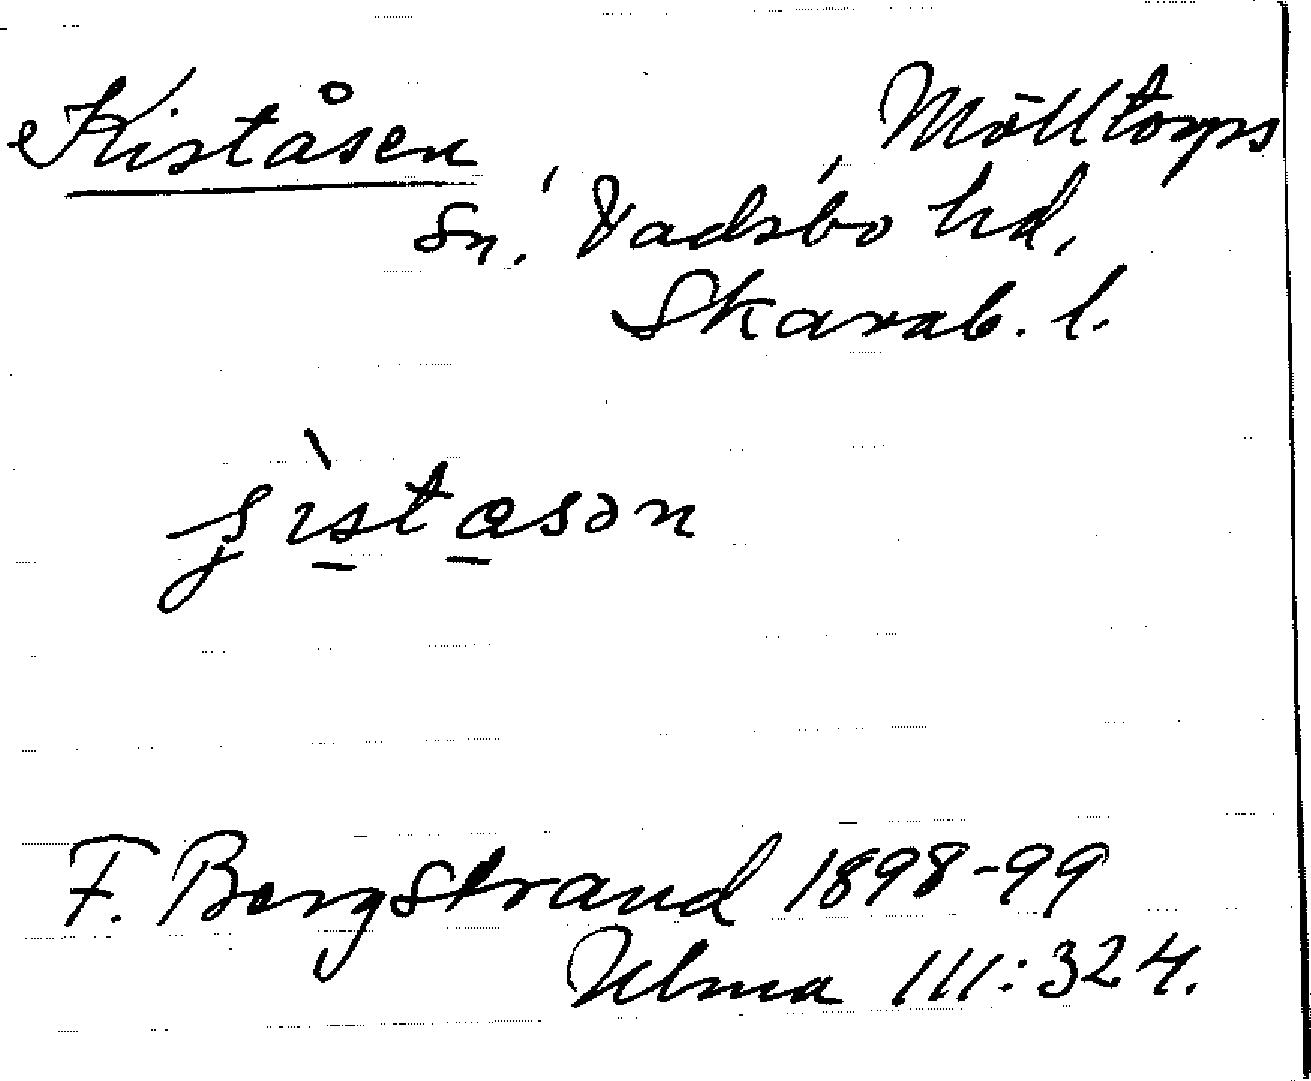 Kiståsen, Mölltorps
sn, Vadsbo hd,
Skarab. l.
F. Bergstrand 1898-99
Ulma 111:324.